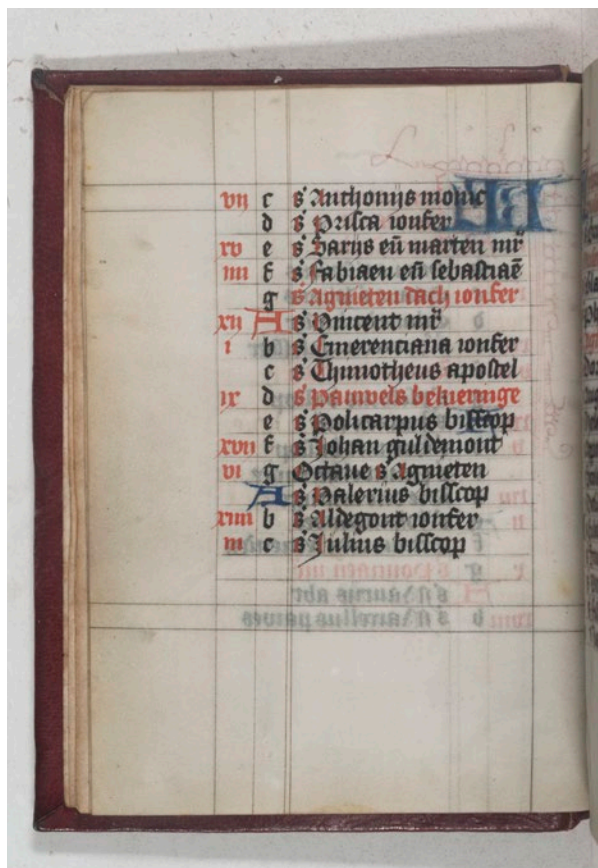 vij c s' Anthonijs monic
d s' Prisca ionfer
xv e s' Marijs eñ marten mr̃
iiij f s' Fabiaen eñ sebastiaē
g s' Agnieten dach ionfer
xij A s' Vincent mr̃
i b s' Emerenciana ionfer
c s' Thimotheus apostel
ix d s' Pauwels bekieringe
e s' Policarpus bisscop
xvij f s' Johan guldemont
vi g Octave s' Agnieten
A s' Valerius bisscop
xiiij b s' Aldegont ionfer
iij c s' Julius bisscop